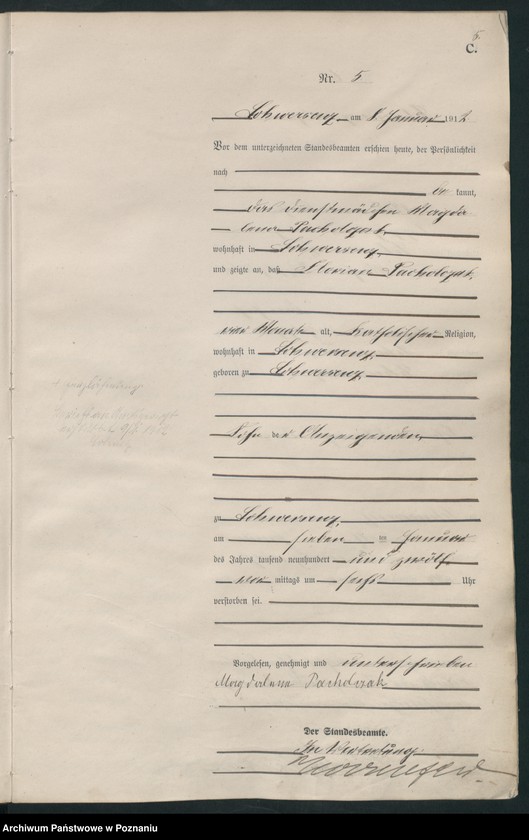 5.
C.
Nr. 5
Schwersenz am 8. Januar 1912
Vor dem unterzeichneten Standesbeamten erschien heute, der Persönlichkeit
nach
be kannt,
das Dienstmädchen Magda
lena Pacholczak,
wohnhaft in Schwersenz,
und zeigte an, daß Florian Pacholczak,
alt, katholischer Religion,
wohnhaft in Schwersenz,
geboren zu Schwersenz,
Sohn der Anzeigenden,
zu Schwersenz,
am sieben ten Januar
des Jahres tausend neunhundert und zwölf
vor mittags um sechs Uhr
verstorben sei.
Vorgelesen, genehmigt und unterschrieben
Magdalena Pacholczak
Der Standesbeamte.
In Vertretung.
Archiwum Państwowe w Poznaniu